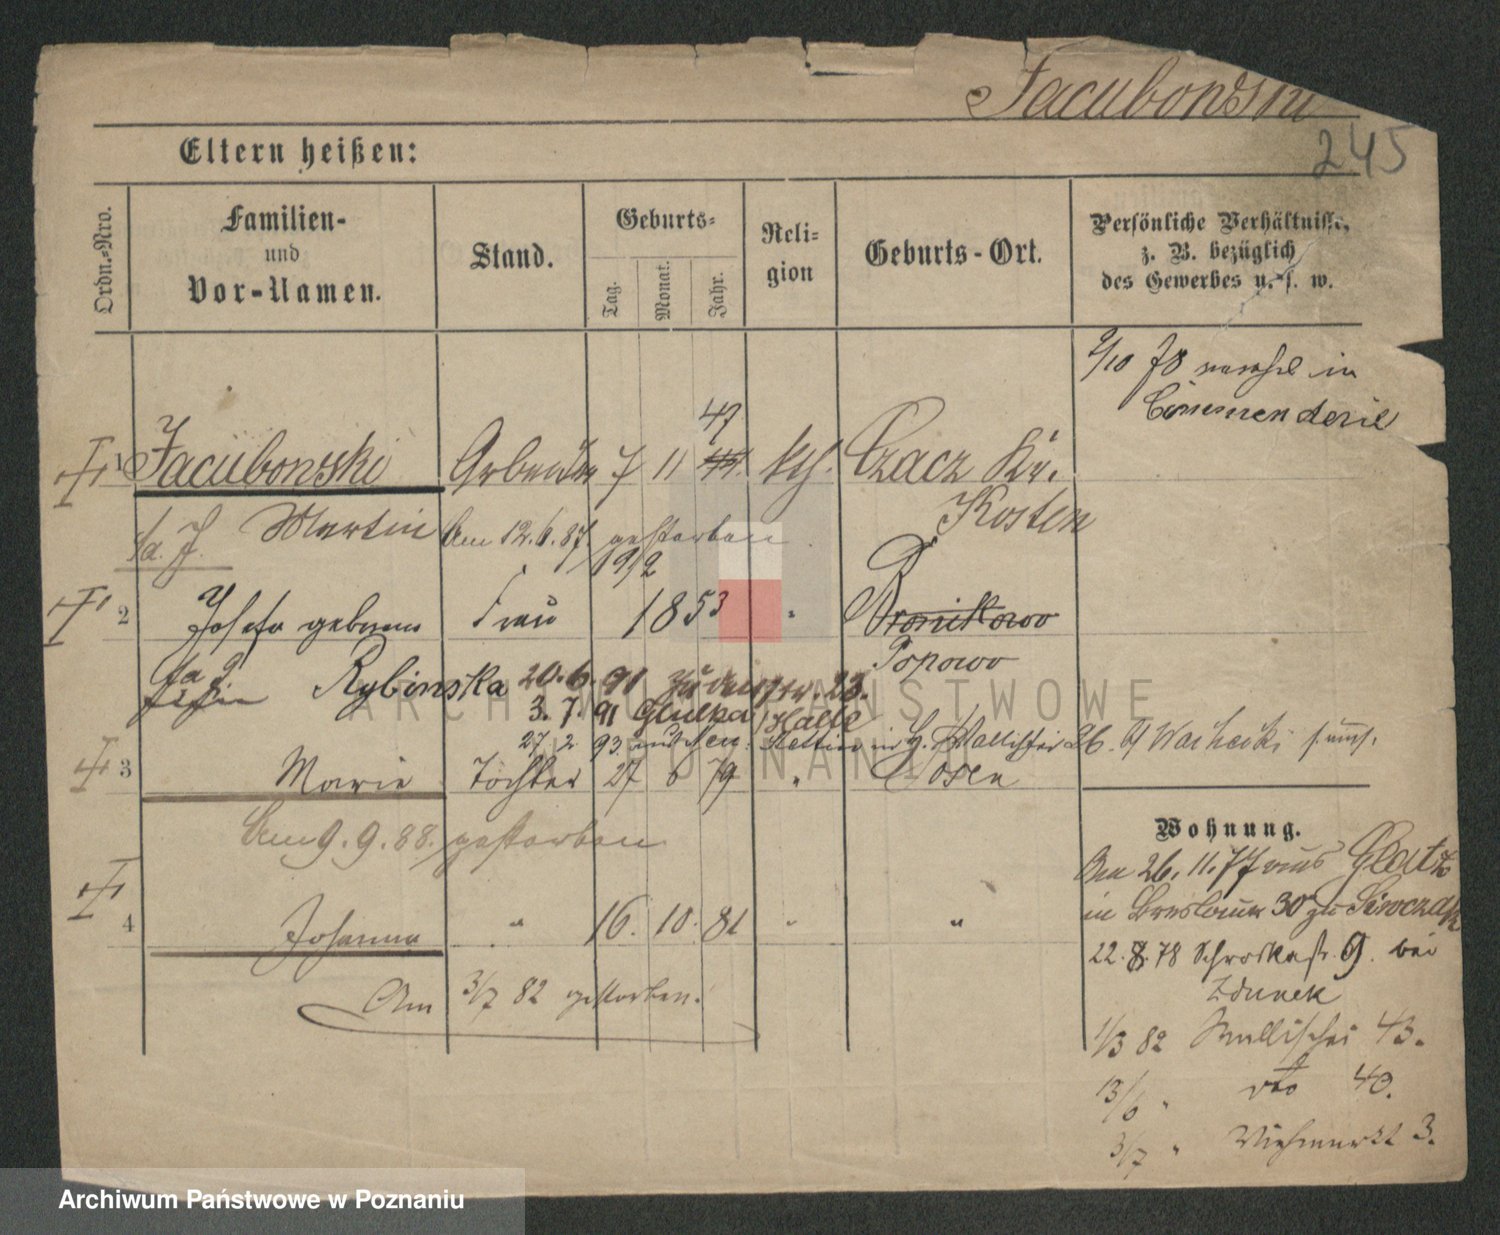 Jacubowski
245
Eltern heißen:
Ordn.-Nro.
Familien-
und
Vor-Namen.
Stand.
Geburts-
Tag.
Monat.
Jahr.
Reli-
gion
Geburts-Ort.
Persönliche Verhältnisse,
z. B. bezüglich
des Gewerbes u. s. w.
2/10 78 in
Commenderie
47
1 Jacubowski Arbeiter 7 11 kth. Czacz Kr.
Kosten
s. J. Martin Am 12.6.87. gestorben
1912
2 Josefa geborne Frau 1853 " Bronikowo
Popowo
Rybinska 20.6.91 23.
3.7.91 Halle
27.2 93 Stettin
3 Marie Tochter 27 6 79 " Posen
Am 9.9.88. gestorben
4 Johanna " 16. 10. 81 " "
Am 3/7 82 gestorben.
Wohnung.
Am 26.11.77 aus
in Breslauer 30 zu
22.8.78 Schrodkastr. 9. bei
Zdunek
1/3 82 Wallischei 43.
13/6 " dto 40.
3/7 " Viehmarkt 3.
ARCHIWUM PAŃSTWOWE
W POZNANIU
Archiwum Państwowe w Poznaniu